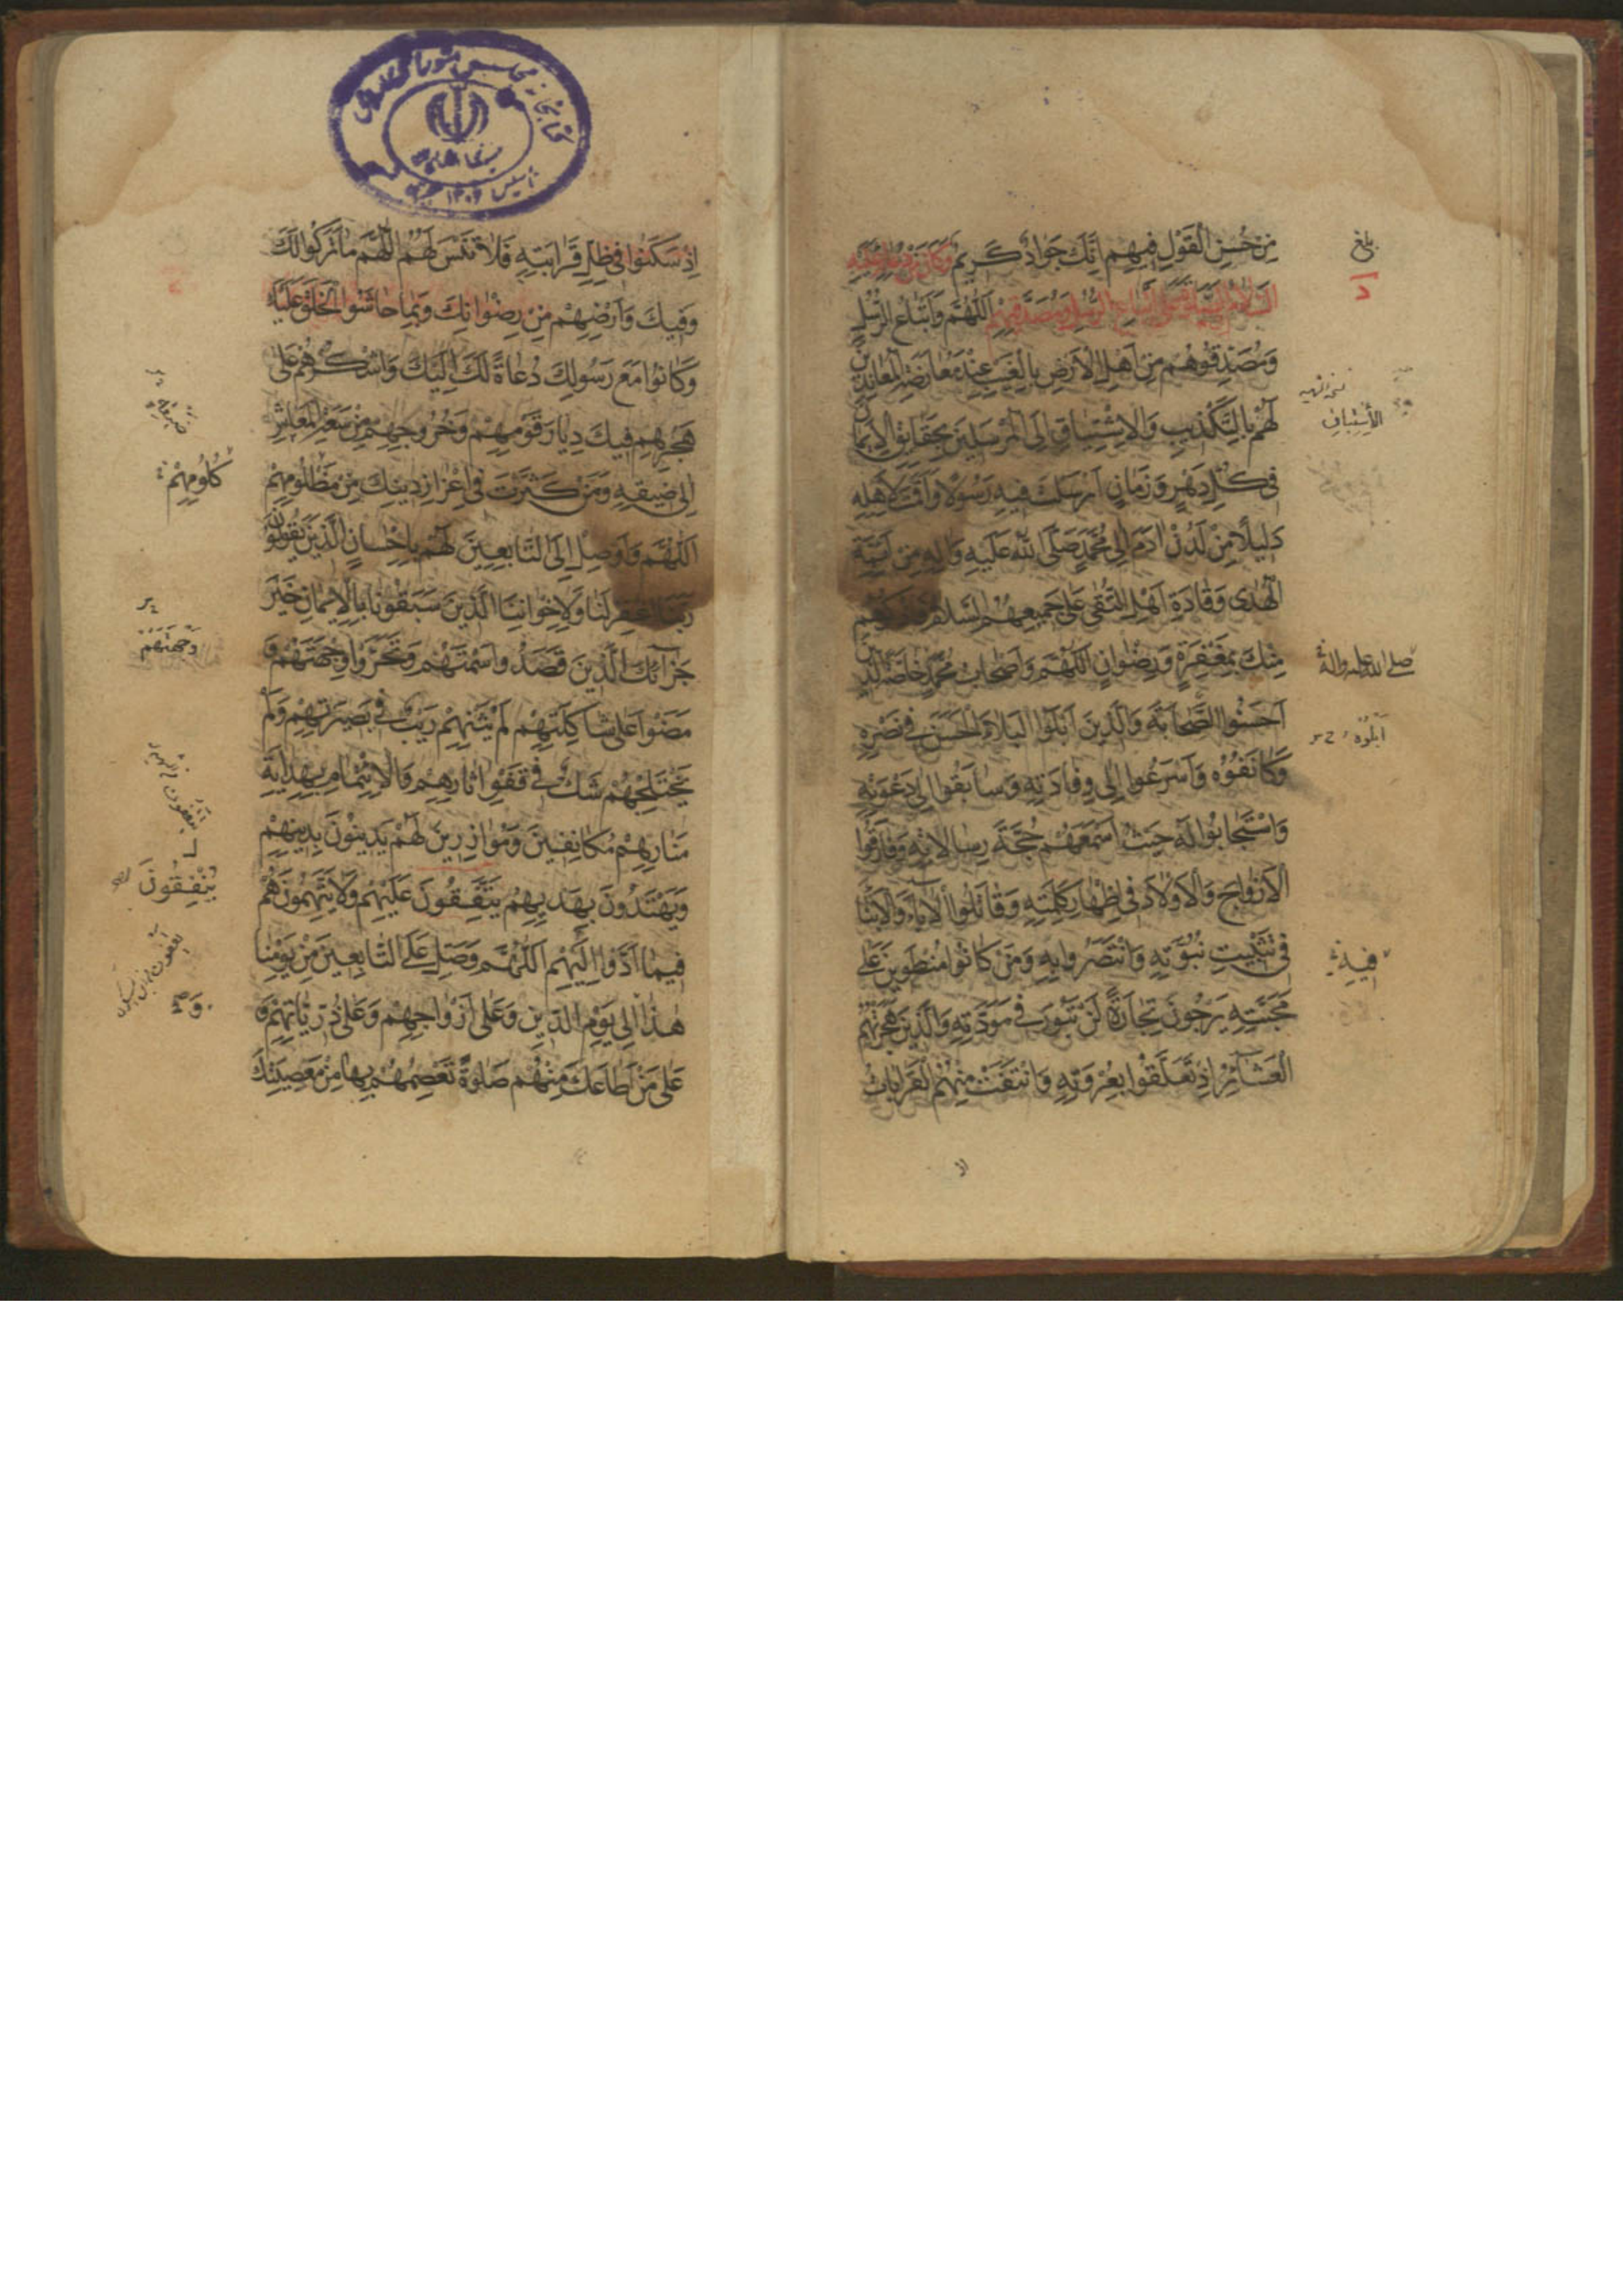 مِنْ حُسْنِ الْقَوْلِ فِيهِم اِنَّكَ جَوَادٌ كَرِيمٌ وَكَانَ مِنْ دُعَائِهِ عَلَيْهِ
السَّلَامُ فِي الصَّلٰوةِ عَلٰى اَتْبَاعِ الرُّسُلِ وَمُصَدِّقِيهِمْ اَللّٰهُمَّ وَاَتْبَاعُ الرُّسُلِ
وَمُصَدِّقُوهُم مِنْ اَهْلِ الْاَرْضِ بِالْغَيْبِ عِنْدَ مُعَارَضَةِ الْمُعَانِدِينَ
لَهُمْ بِالتَّكْذِيبِ وَالْاِشْتِيَاقِ اِلَى الْمُرْسَلِينَ بِحَقَايِقِ الْاِيمَانِ
فِى كُلِّ دَهْرٍ وَزَمَانٍ اَرْسَلْتَ فِيهِ رَسُولًا وَاَقَمْتَ لِاَهْلِهِ
دَلِيلًا مِنْ لَدُنْ اٰدَمَ اِلٰى مُحَمَّدٍ صَلَّى اللّٰهُ عَلَيْهِ وَاٰلِهِ مِنْ اَئِمَّةِ
الْهُدٰى وَقَادَةِ اَهْلِ التُّقٰى عَلٰى جَمِيعِهِمُ السَّلَامُ فَاذْكُرْهُم
مِنْكَ بِمَغْفِرَةٍ وَرِضْوَانٍ اَللّٰهُمَّ وَاَصْحَابُ مُحَمَّدٍ خَاصَّةً الَّذِينَ
اَحْسَنُوا الصَّحَابَةَ وَالَّذِينَ اَبْلَوُا الْبَلَاءَ الْحَسَنَ فِى نَصْرِهِ
وَكَانَفُوهُ وَاَسْرَعُوا اِلٰى وِفَادَتِهِ وَسَابَقُوا اِلٰى دَعْوَتِهِ
وَاسْتَجَابُوا لَهُ حَيْثُ اَسْمَعَهُمْ حُجَّةَ رِسَالَاتِهِ وَفَارَقُوا
الْاَزْوَاجَ وَالْاَوْلَادَ فِى اِظْهَارِ كَلِمَتِهِ وَقَاتَلُوا الْاٰبَاءَ وَالْاَبْنَاءَ
فِى تَثْبِيتِ نُبُوَّتِهِ وَانْتَصَرُوا بِهِ وَمَنْ كَانُوا مُنْطَوِينَ عَلٰى
مَحَبَّتِهِ يَرْجُونَ تِجَارَةً لَنْ تَبُورَ فِى مَوَدَّتِهِ وَالَّذِينَ هَجَرَتْهُمُ
الْعَشَائِرُ اِذْ تَعَلَّقُوا بِعُرْوَتِهِ وَانْتَفَتْ مِنْهُمُ الْقَرَابَاتُ
بلغ
د
الْاِسْتِبَاقِ
صلى الله عليه واله
اَبْلَوْهُ
فِيهِ
اِذْ سَكَنُوا فِى ظِلِّ قَرَابَتِهِ فَلَا تَنْسَ لَهُمُ اللّٰهُمَّ مَا تَرَكُوا لَكَ
وَفِيكَ وَاَرْضِهِمْ مِنْ رِضْوَانِكَ وَبِمَا حَاشُوا الْخَلْقَ عَلَيْكَ
وَكَانُوا مَعَ رَسُولِكَ دُعَاةً لَكَ اِلَيْكَ وَاشْكُرْهُمْ عَلٰى
هَجْرِهِم فِيكَ دِيَارَ قَوْمِهِمْ وَخُرُوجِهِمْ مِنْ سَعَةِ الْمَعَاشِ
اِلٰى ضِيقِهِ وَمَنْ كَثَّرْتَ فِى اِعْزَازِ دِينِكَ مِنْ مَظْلُومِهِمْ
اَللّٰهُمَّ وَاَوْصِلْ اِلَى التَّابِعِينَ لَهُمْ بِاِحْسَانٍ الَّذِينَ يَقُولُونَ
رَبَّنَا اغْفِرْ لَنَا وَلِاِخْوَانِنَا الَّذِينَ سَبَقُونَا بِالْاِيمَانِ خَيْرَ
جَزَائِكَ الَّذِينَ قَصَدُوا سَمْتَهُمْ وَتَحَرَّوْا وِجْهَتَهُمْ وَ
مَضَوْا عَلٰى شَاكِلَتِهِمْ لَمْ يَثْنِهِمْ رَيْبٌ فِى بَصِيرَتِهِمْ وَلَمْ
يَخْتَلِجْهُمْ شَكٌّ فِى قَفْوِ اٰثَارِهِمْ وَالْاِئْتِمَامِ بِهِدَايَةِ
مَنَارِهِمْ مُكَانِفِينَ وَمُوَازِرِينَ لَهُمْ يَدِينُونَ بِدِينِهِمْ
وَيَهْتَدُونَ بِهَدْيِهِمْ يَتَّفِقُونَ عَلَيْهِمْ وَلَا يَتَّهِمُونَهُمْ
فِيمَا اَدَّوْا اِلَيْهِم اَللّٰهُمَّ وَصَلِّ عَلَى التَّابِعِينَ مِنْ يَوْمِنَا
هٰذَا اِلٰى يَوْمِ الدِّينِ وَعَلٰى اَزْوَاجِهِمْ وَعَلٰى ذُرِّيَّاتِهِمْ وَ
عَلٰى مَنْ اَطَاعَكَ مِنْهُمْ صَلٰوةً تَعْصِمُهُمْ بِهَا مِنْ مَعْصِيَتِكَ
كُلُومِهِمْ
وُجْهَتَهُم
يُنْفِقُونَ
وَ